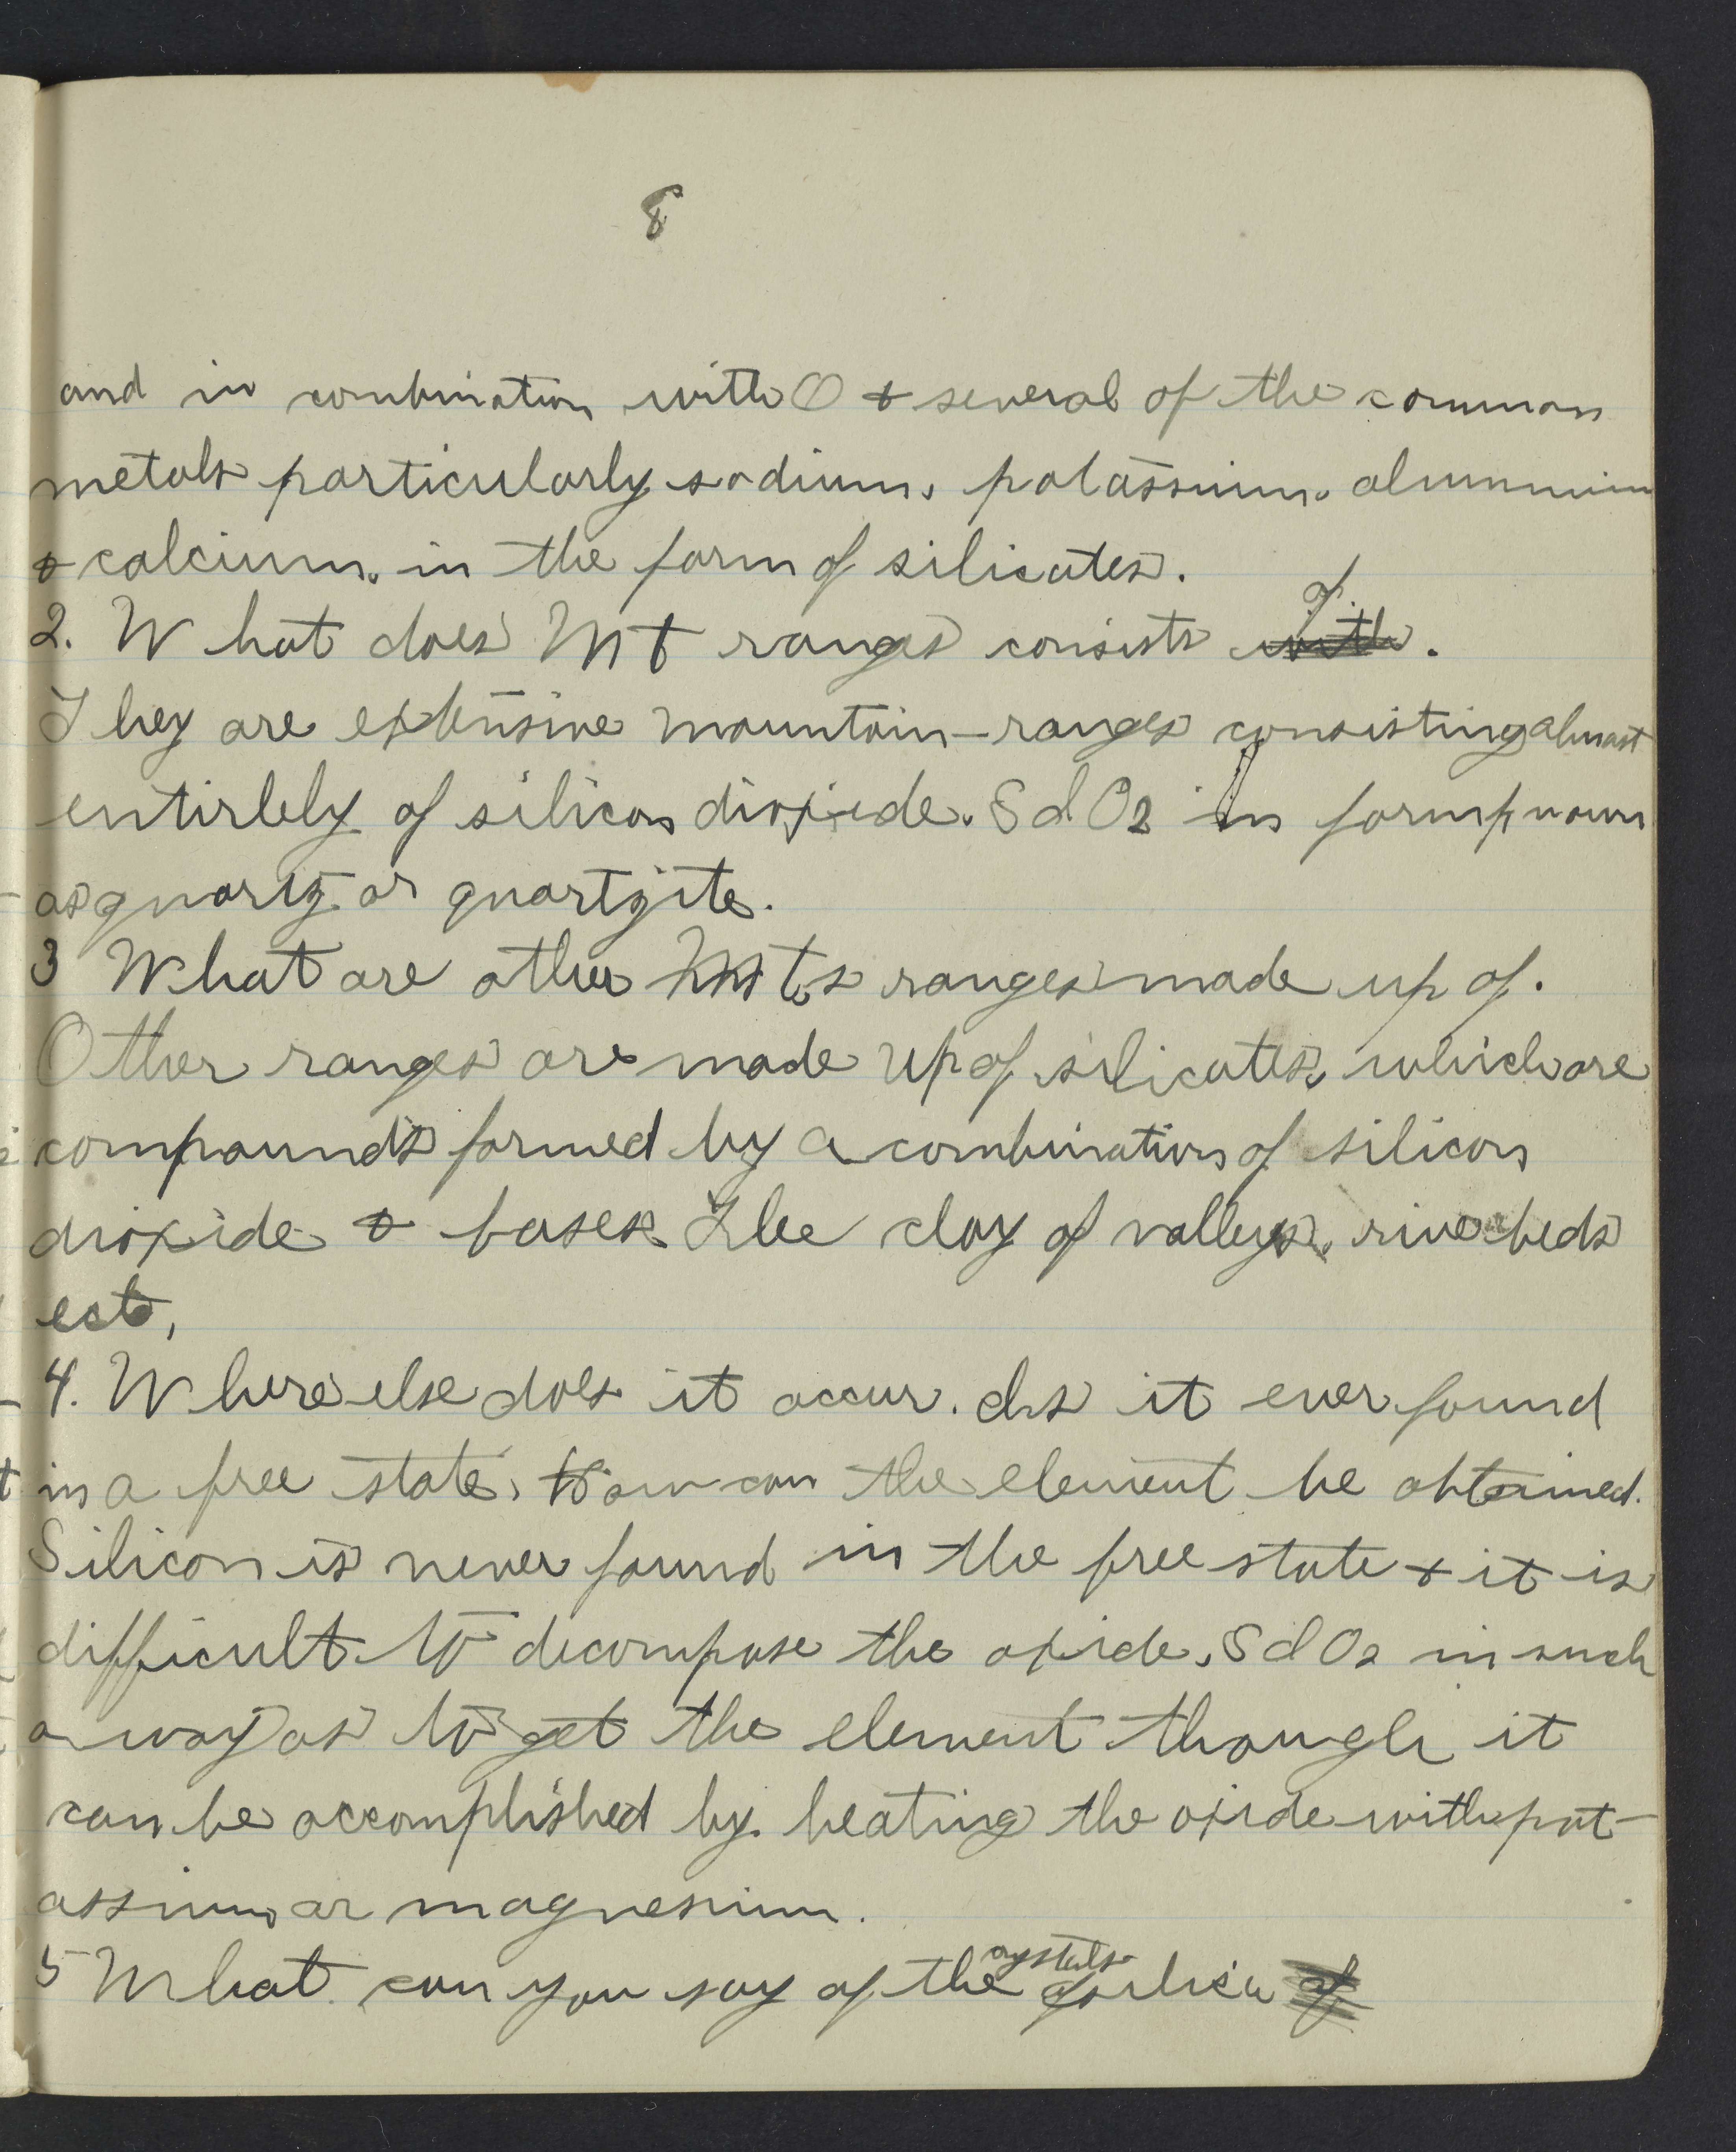 8
and in combination with O & several of the common
metals particularly sodium, potassium, aluminium
& calcium, in the form of silicates.
2. What does Mt ranges consists with of.
They are extensive mountain-ranges consisting almost
entirlely of silicon dioxide. SiO2 in form known
as quartz or quartzite.
3 What are other Mts ranges made up of.
Other ranges are made up of silicates, which are
compounds formed by a combination of silicon
dioxide & bases. The clay of valleys, river beds
ect,
4. Where else does it occur. Is it ever found
in a free state, How can the element be obtained.
Silicon is never found in the free state & it is
difficult to decompose the oxide, SiO2 in such
a way as to get the element though it
can be accomplished by heating the oxide with pot-
assium or magnesium.
5 What can you say of the crystals of silica of